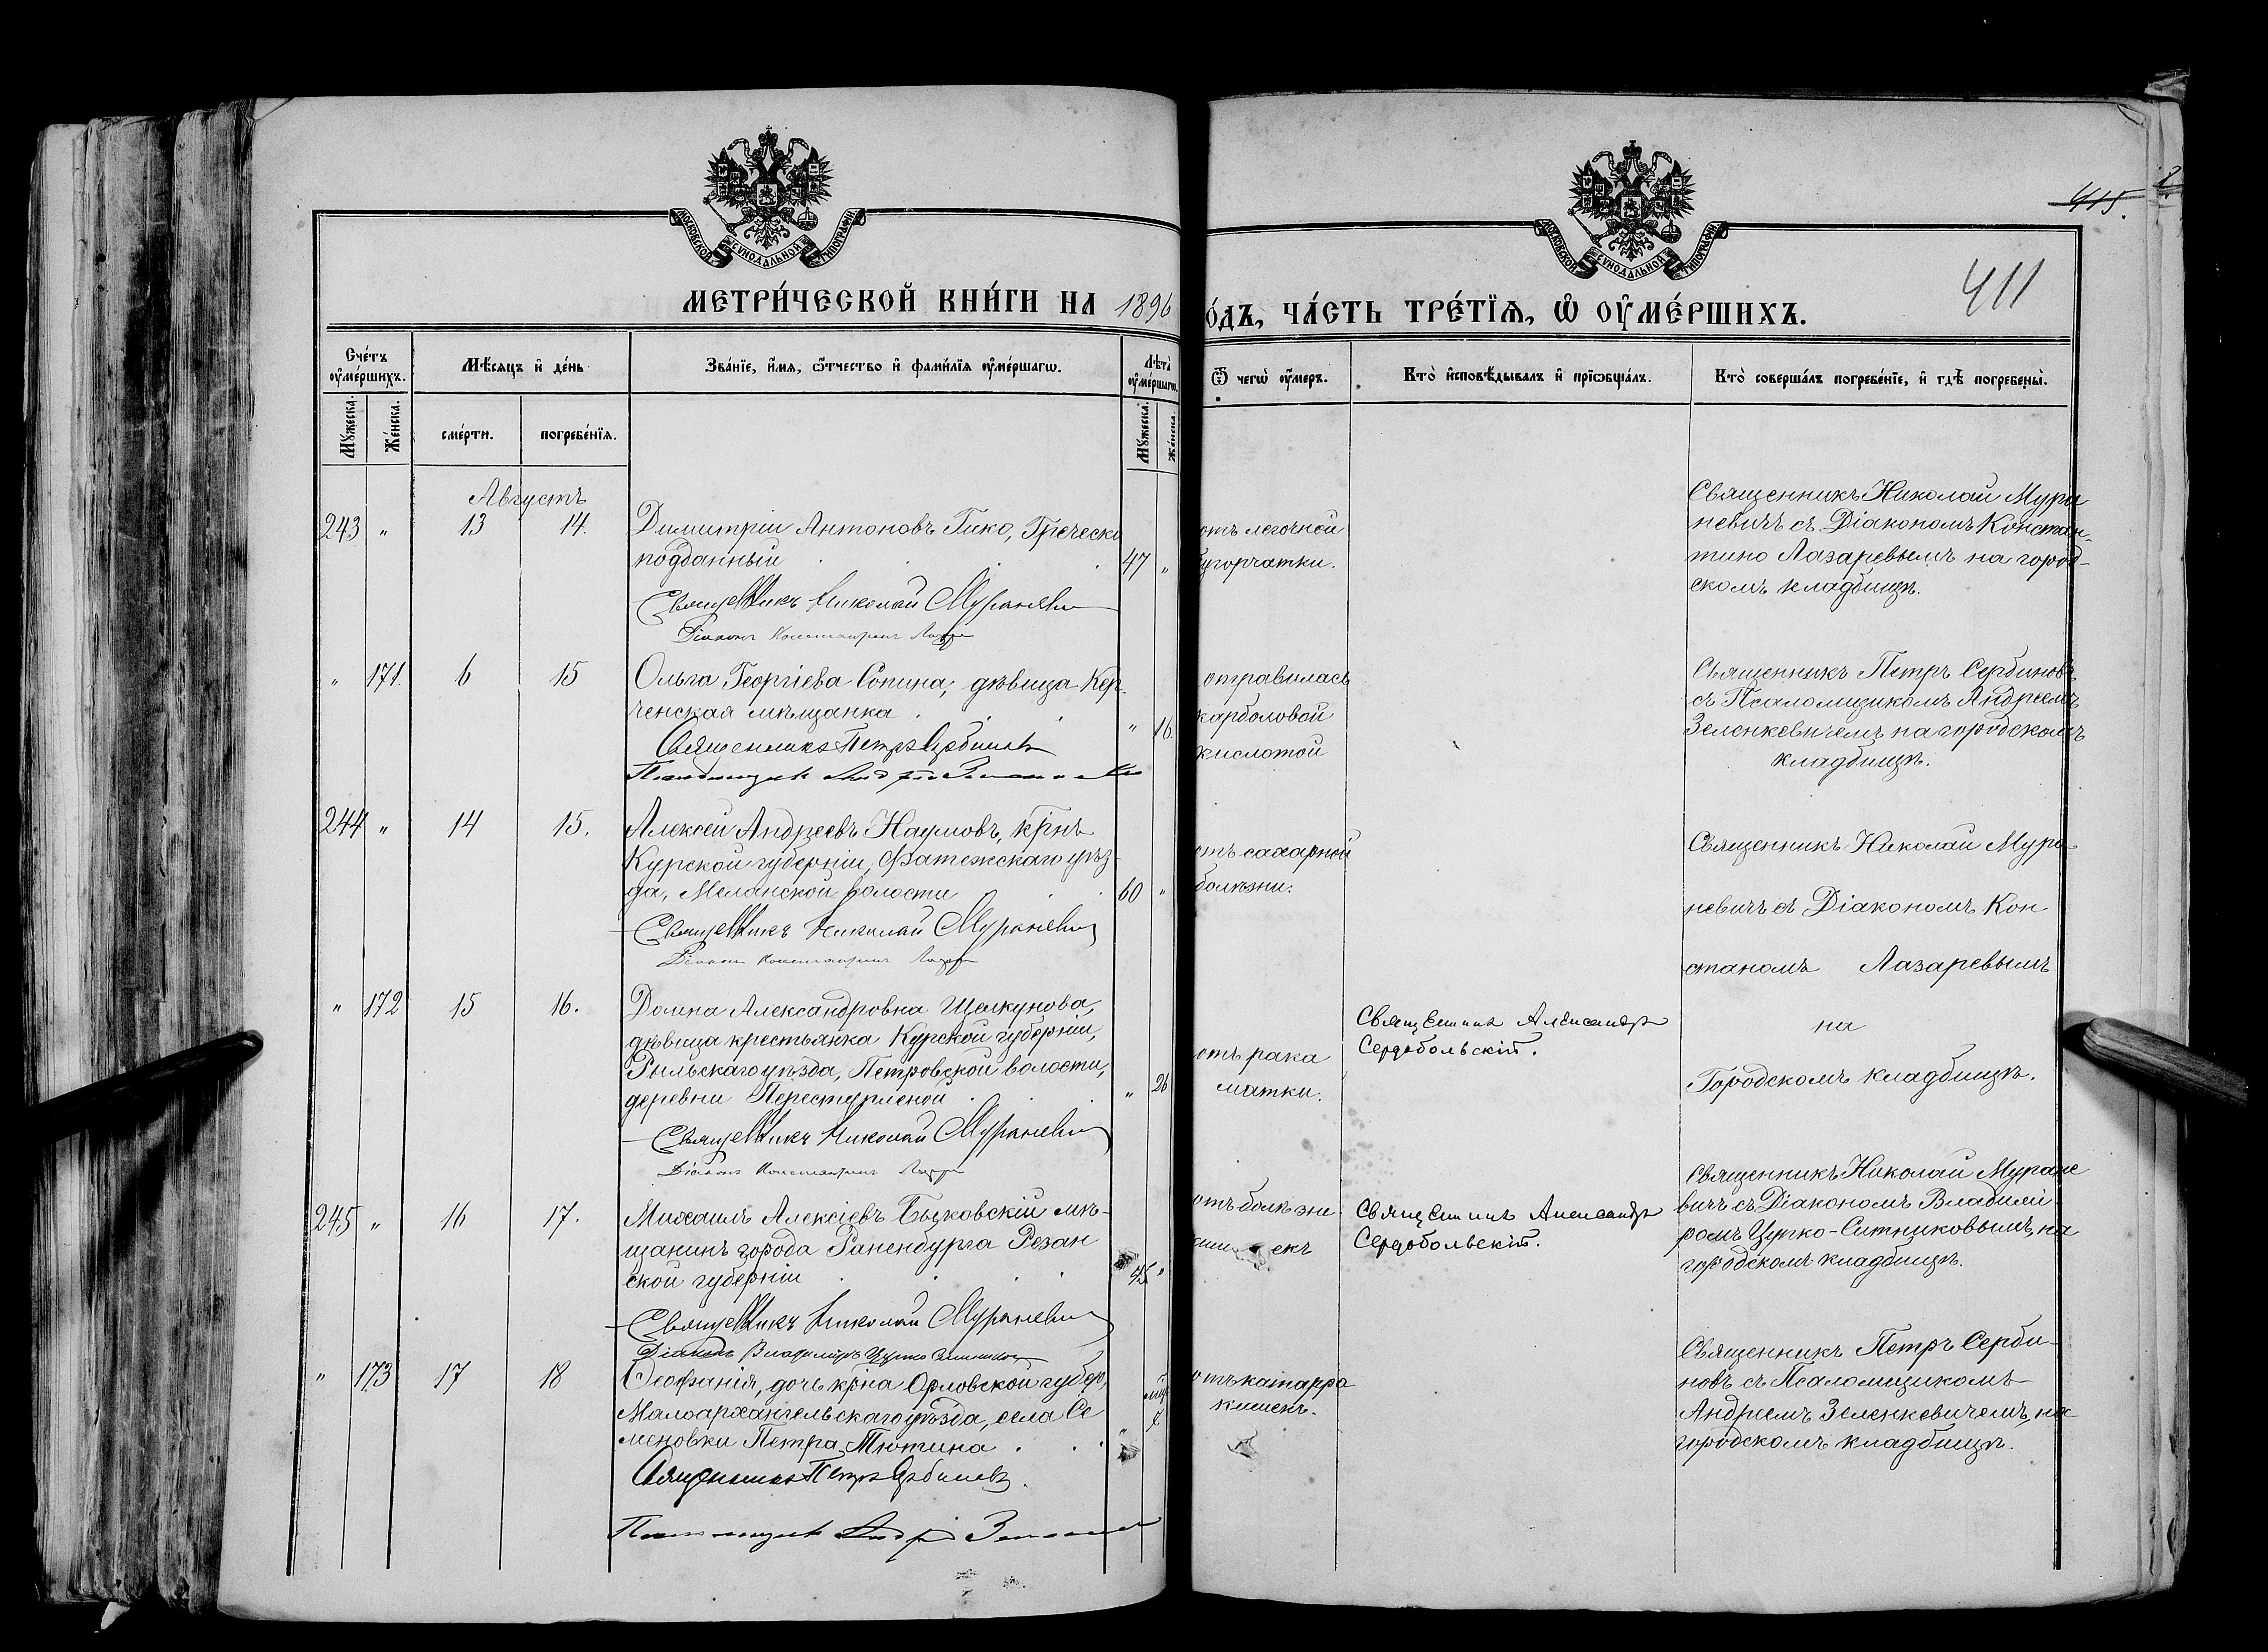 415.
2
411
МОСКОВСКОЙ СѴНОДАЛЬНОЙ ТИПОГРАФІИ
МОСКОВСКОЙ СѴНОДАЛЬНОЙ ТИПОГРАФІИ
МЕТРИ́ЧЕСКОЙ КНИ́ГИ НА 1896
О́ДЪ, ЧА́СТЬ ТРЕ́ТЇѦ, Ѡ҆ ОУ҆МЕ́РШИХЪ.
Сче́тъ оу҆ме́ршихъ.
Мѣ́сяцъ и҆ де́нь
Зва́нїе, и҆́мя, ѻ҆́тчество и҆ фами́лїя оу҆ме́ршагѡ.
Лѣта̀ оу҆ме́ршагѡ.
Ѿ чегѡ̀ оу҆́меръ.
Кто̀ и҆сповѣ́дывалъ и҆ прїѡбща́лъ.
Кто̀ соверша́лъ погребе́нїе, и҆ гдѣ̀ погребены̀.
Мꙋ́жеска.
Же́нска.
сме́рти.
погребе́нїя.
Мꙋ́жеска.
Же́нска.
Августъ
243 " 13 14. Димитрій Антоновъ Гико, Греческо
подданный 47 "
Священникъ Николай Мураневич
Діаконъ Константинъ Лазар
отъ легочной
бугорчатки.
Священникъ Николай Мура
невичъ съ Діакономъ Констан-
тино Лазаревымъ на город-
скомъ кладбищѣ.
" 171. 6 15 Ольга Георгіева Сопина, дѣвица Кер-
ченская мѣщанка " 16.
Священникъ Петръ Сербиновъ
Псаломщикъ Андрей Зеленкевич
отравилась
карболовой
кислотой
Священникъ Петръ Сербиновъ
съ Псаломщикомъ Андреемъ
Зеленкевичемъ на городскомъ
кладбищѣ.
244 " 14 15. Алексей Андреевъ Наумовъ, крнъ
Курской губерніи, Фатежскаго уѣз-
да, Меланской волости 60 "
Священникъ Николай Мураневич
Діаконъ Константинъ Лазар
отъ сахарной
болѣзни.
Священникъ Николай Мура-
невичъ съ Діакономъ Кон
станомъ Лазаревымъ
на
Городскомъ кладбищѣ.
" 172 15 16. Домна Александровна Щелкунова,
дѣвица крестьянка Курской губерніи,
Рыльскаго уѣзда, Петровской волости,
деревни " 26
Священникъ Николай Мураневич
Діаконъ Константинъ Лазар
отъ рака
матки.
Священникъ Александръ
Сердобольскій.
245 " 16 17. Михаилъ Алексіевъ Быковскій мѣ-
щанинъ города Раненбурга Резан
ской губерніи 45 "
Священникъ Николай Мураневич
Діаконъ Владиміръ Цурко Ситников
отъ болѣзни
кишекъ
Священникъ Александръ
Сердобольскій.
Священникъ Николай Муране
вичъ съ Діакономъ Владимі
ромъ Цурко-Ситниковымъ, на
городскомъ кладбищѣ.
" 173 17 18 Ѳеофанія, дочь крна Орловской губер,
Малоархангельскаго уѣзда, села Се
меновки Петра Тютина "
Священникъ Петръ Сербиновъ.
Псаломщикъ Андрей Зеленкевич
отъ катарра
кишекъ.
Священникъ Петръ Серби-
новъ съ Псаломщикомъ
Андреемъ Зеленкевичемъ, на
городскомъ кладбищѣ.